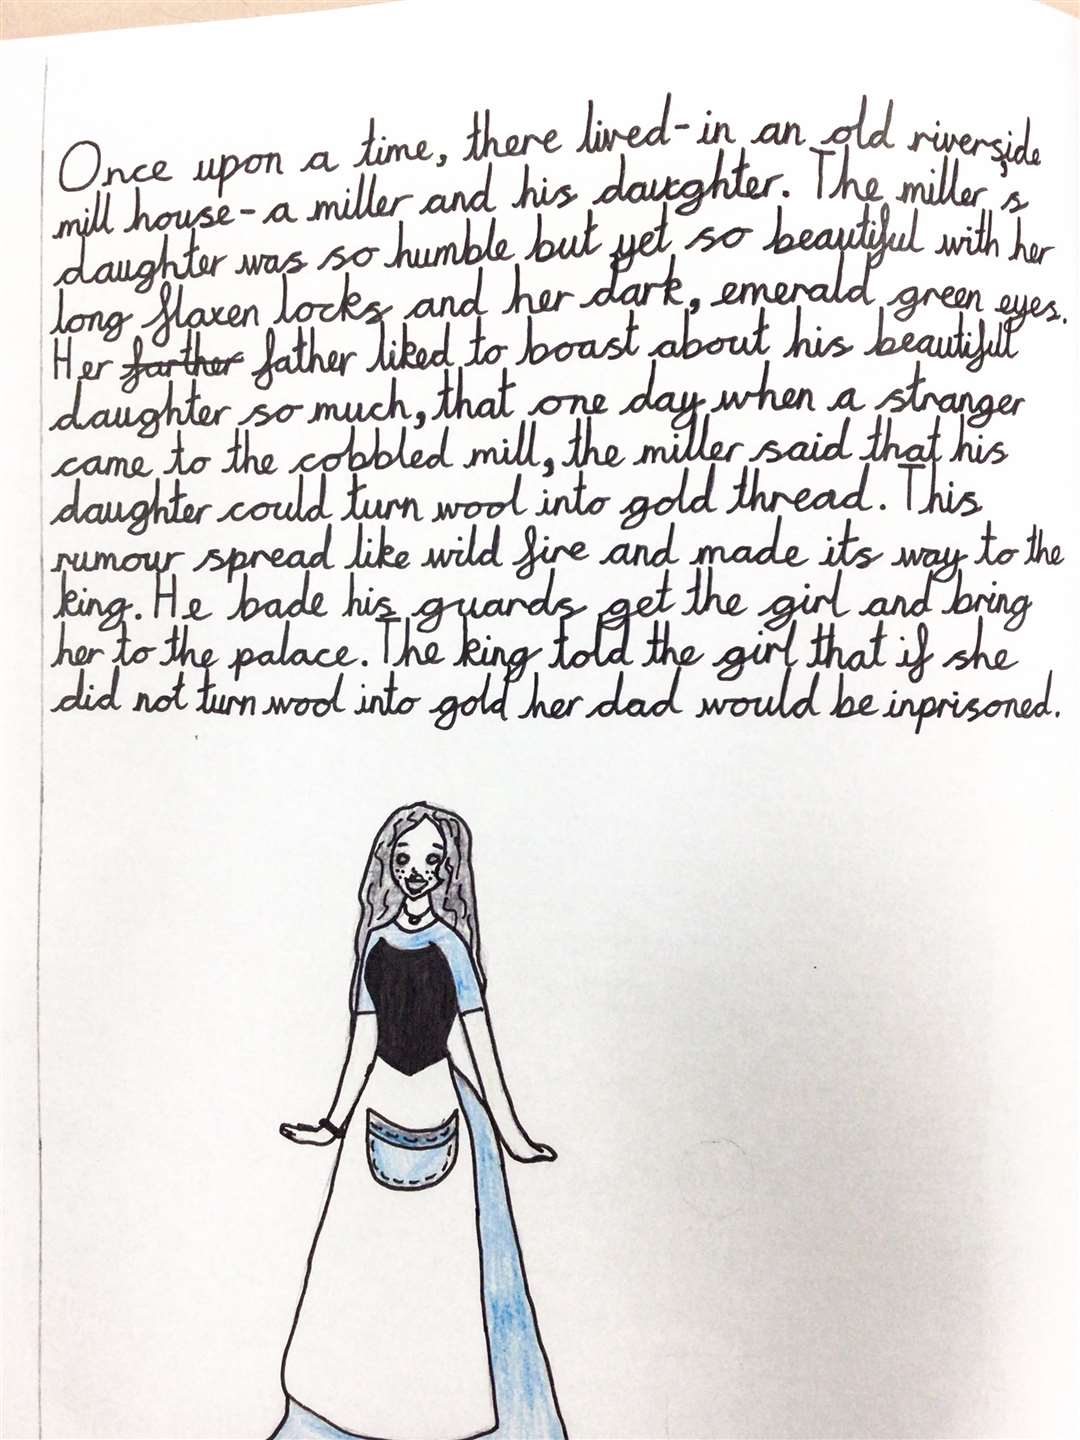 Once upon a time, there lived-in an old riverside
mill house-a miller and his daughter. The miller's
daughter was so humble but yet so beautiful with her
long flaxen locks and her dark, emerald green eyes.
Her farther father liked to boast about his beautiful
daughter so much, that one day when a stranger
came to the cobbled mill, the miller said that his
daughter could turn wool into gold thread. This
rumour spread like wild fire and made its way to the
king. He bade his guards get the girl and bring
her to the palace. The king told the girl that if she
did not turn wool into gold her dad would be inprisoned.